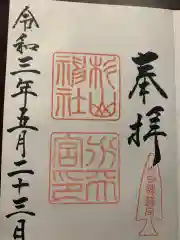 奉拝
杉山
神社
宮印
令和三年五月二十三日